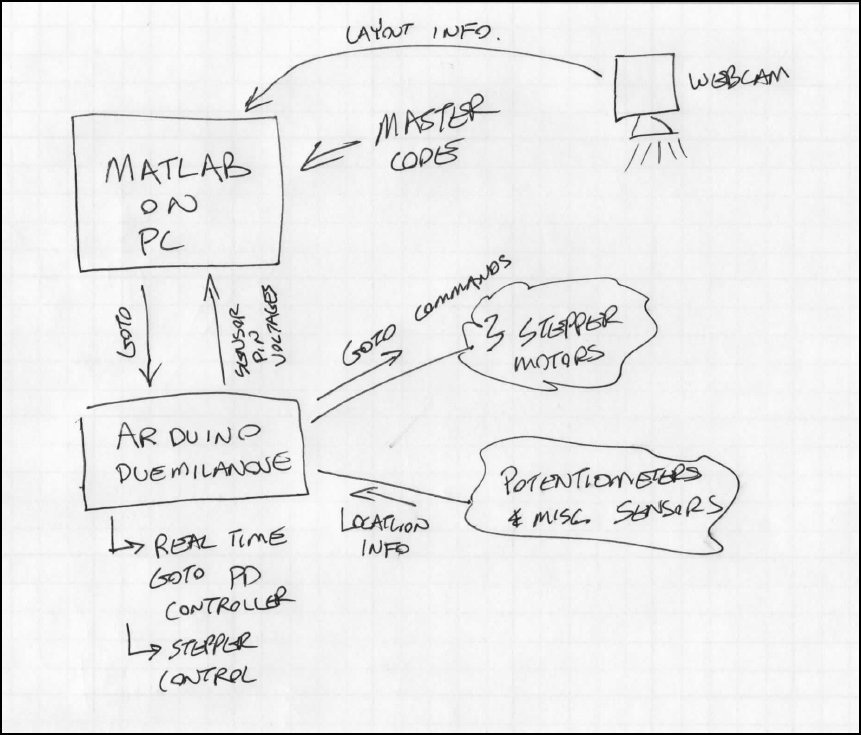 LAYOUT INFO.
WEBCAM
MASTER
CODES
MATLAB
ON
PC
GOTO
SENSOR
PIN
VOLTAGES
GOTO COMMANDS
3 STEPPER
MOTORS
ARDUINO
DUEMILANOVE
POTENTIOMETERS
& MISC. SENSORS
LOCATION
INFO
REAL TIME
GOTO PD
CONTROLLER
STEPPER
CONTROL